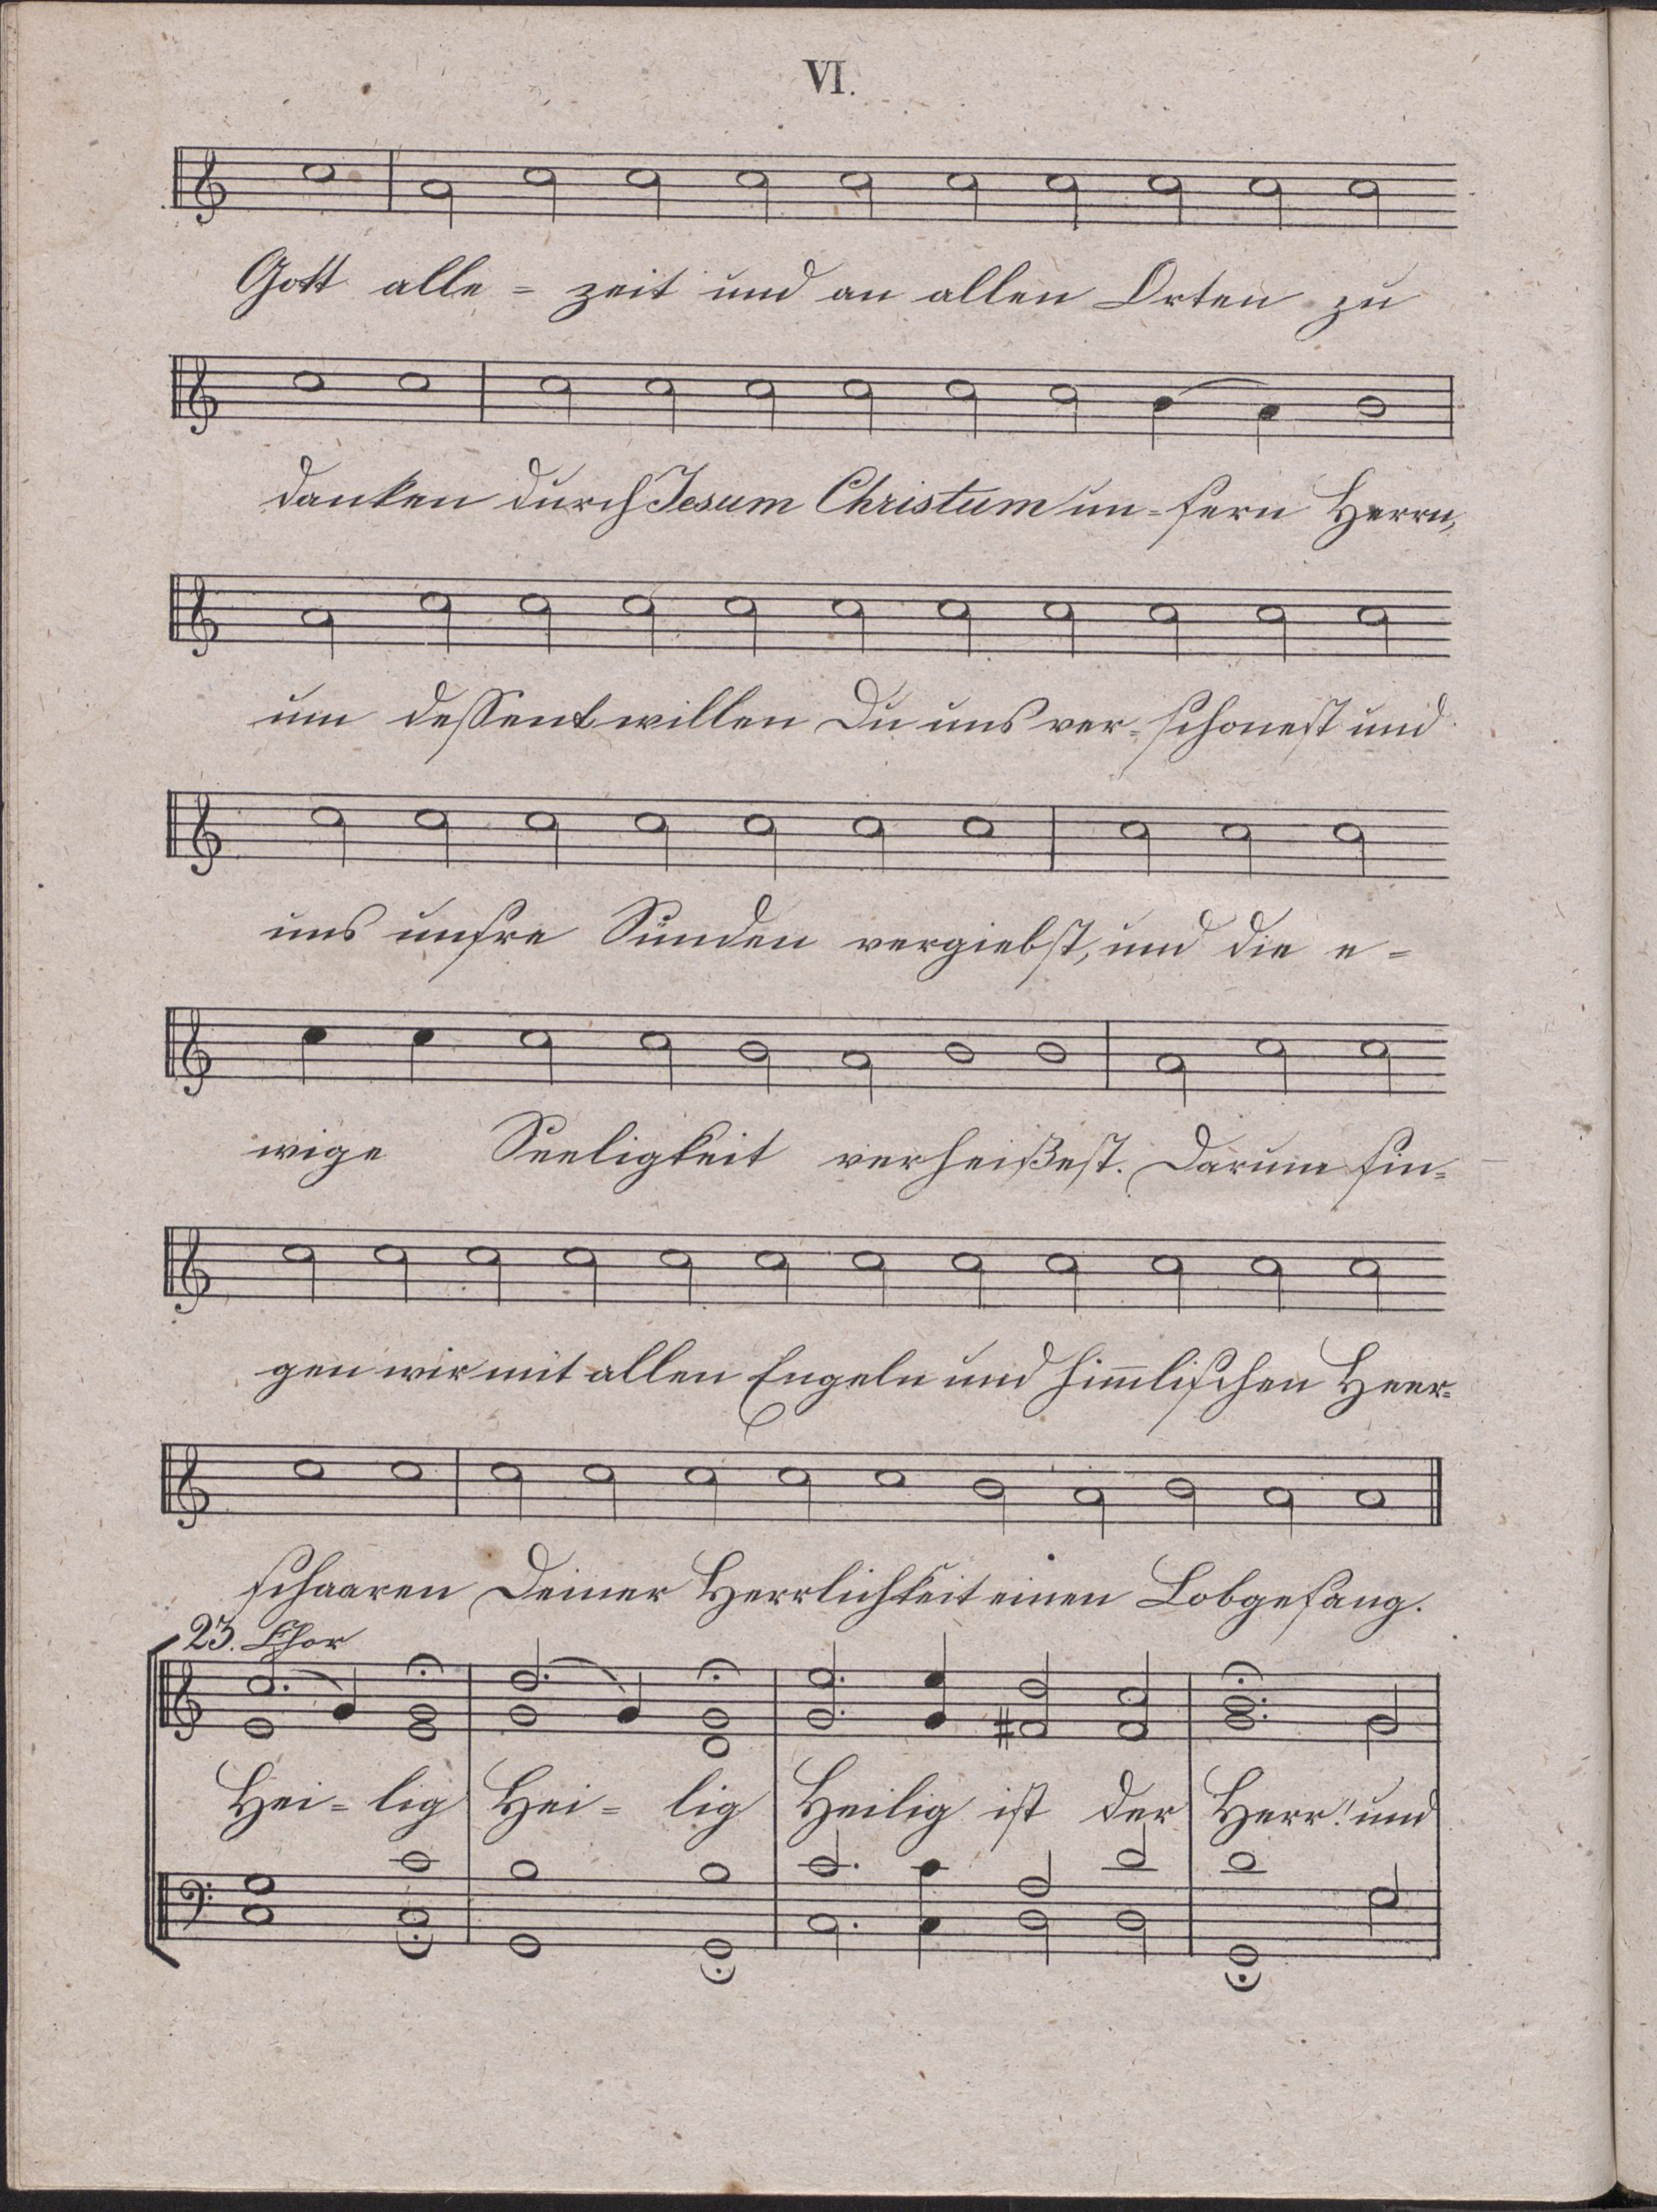 VI.
Gott alle = zeit und an allen Orten zu
danken durch Jesum Christum un=sern Herrn,
um dessentwillen Du uns ver=schonest und
uns unsre Sünden vergiebst, und die e=
wige Seeligkeit verheißest. Darum sin=
gen wir mit allen Engeln und himmlischen Heer=
schaaren Deiner Herrlichkeit einen Lobgesang.
23. Chor
Hei = lig Hei = lig Heilig ist der Herr! und